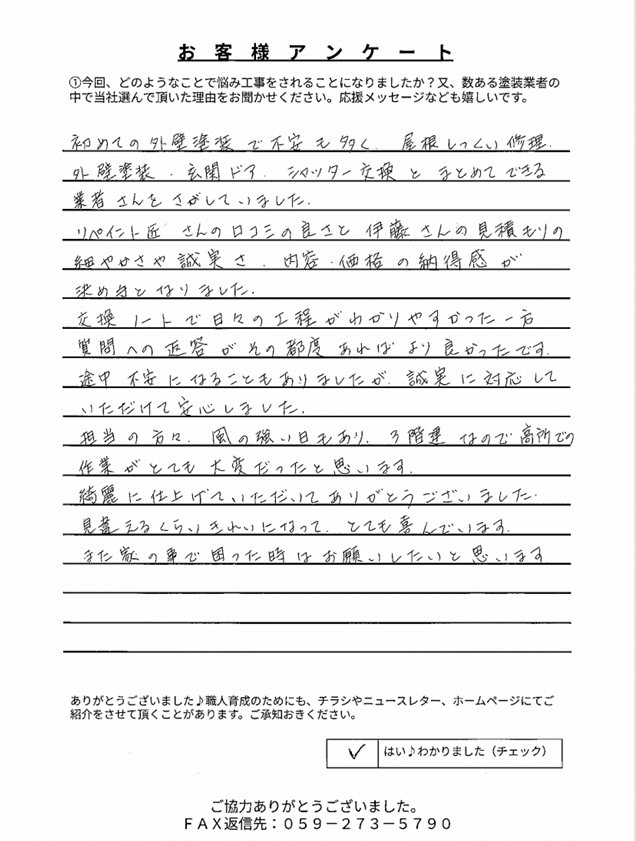 お客様アンケート
①今回、どのようなことで悩み工事をされることになりましたか？又、数ある塗装業者の
中で当社選んで頂いた理由をお聞かせください。応援メッセージなども嬉しいです。
初めての外壁塗装で不安も多く、屋根しっくい修理、
外壁塗装、玄関ドア、シャッター交換とまとめてできる
業者さんをさがしていました。
リペイント匠さんの口コミの良さと伊藤さんの見積もりの
細やかさや誠実さ、内容・価格の納得感が
決め手となりました。
交換ノートで日々の工程がわかりやすかった一方
質問への返答がその都度あればより良かったです。
途中不安になることもありましたが、誠実に対応して
いただけて安心しました。
担当の方々、風の強い日もあり、3階建なので高所での
作業がとても大変だったと思います。
綺麗に仕上げていただいてありがとうございました。
見違えるくらいきれいになって、とても喜んでいます。
また家の事で困った時はお願いしたいと思います
ありがとうございました♪職人育成のためにも、チラシやニュースレター、ホームページにてご
紹介をさせて頂くことがあります。ご承知おきください。
✓ はい♪わかりました（チェック）
ご協力ありがとうございました。
ＦＡＸ返信先：０５９－２７３－５７９０